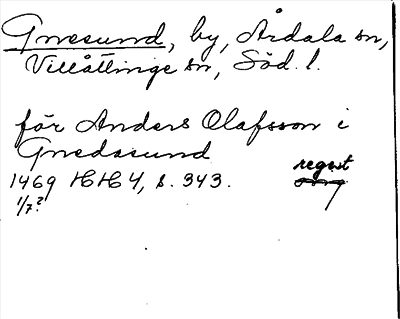 Gnesund, by, Årdala sn,
Villåttinge sn, Söd. l.
för Anders Olafsson i
Gnedasund
regest
1469 HH 4, s. 343.
1/7?